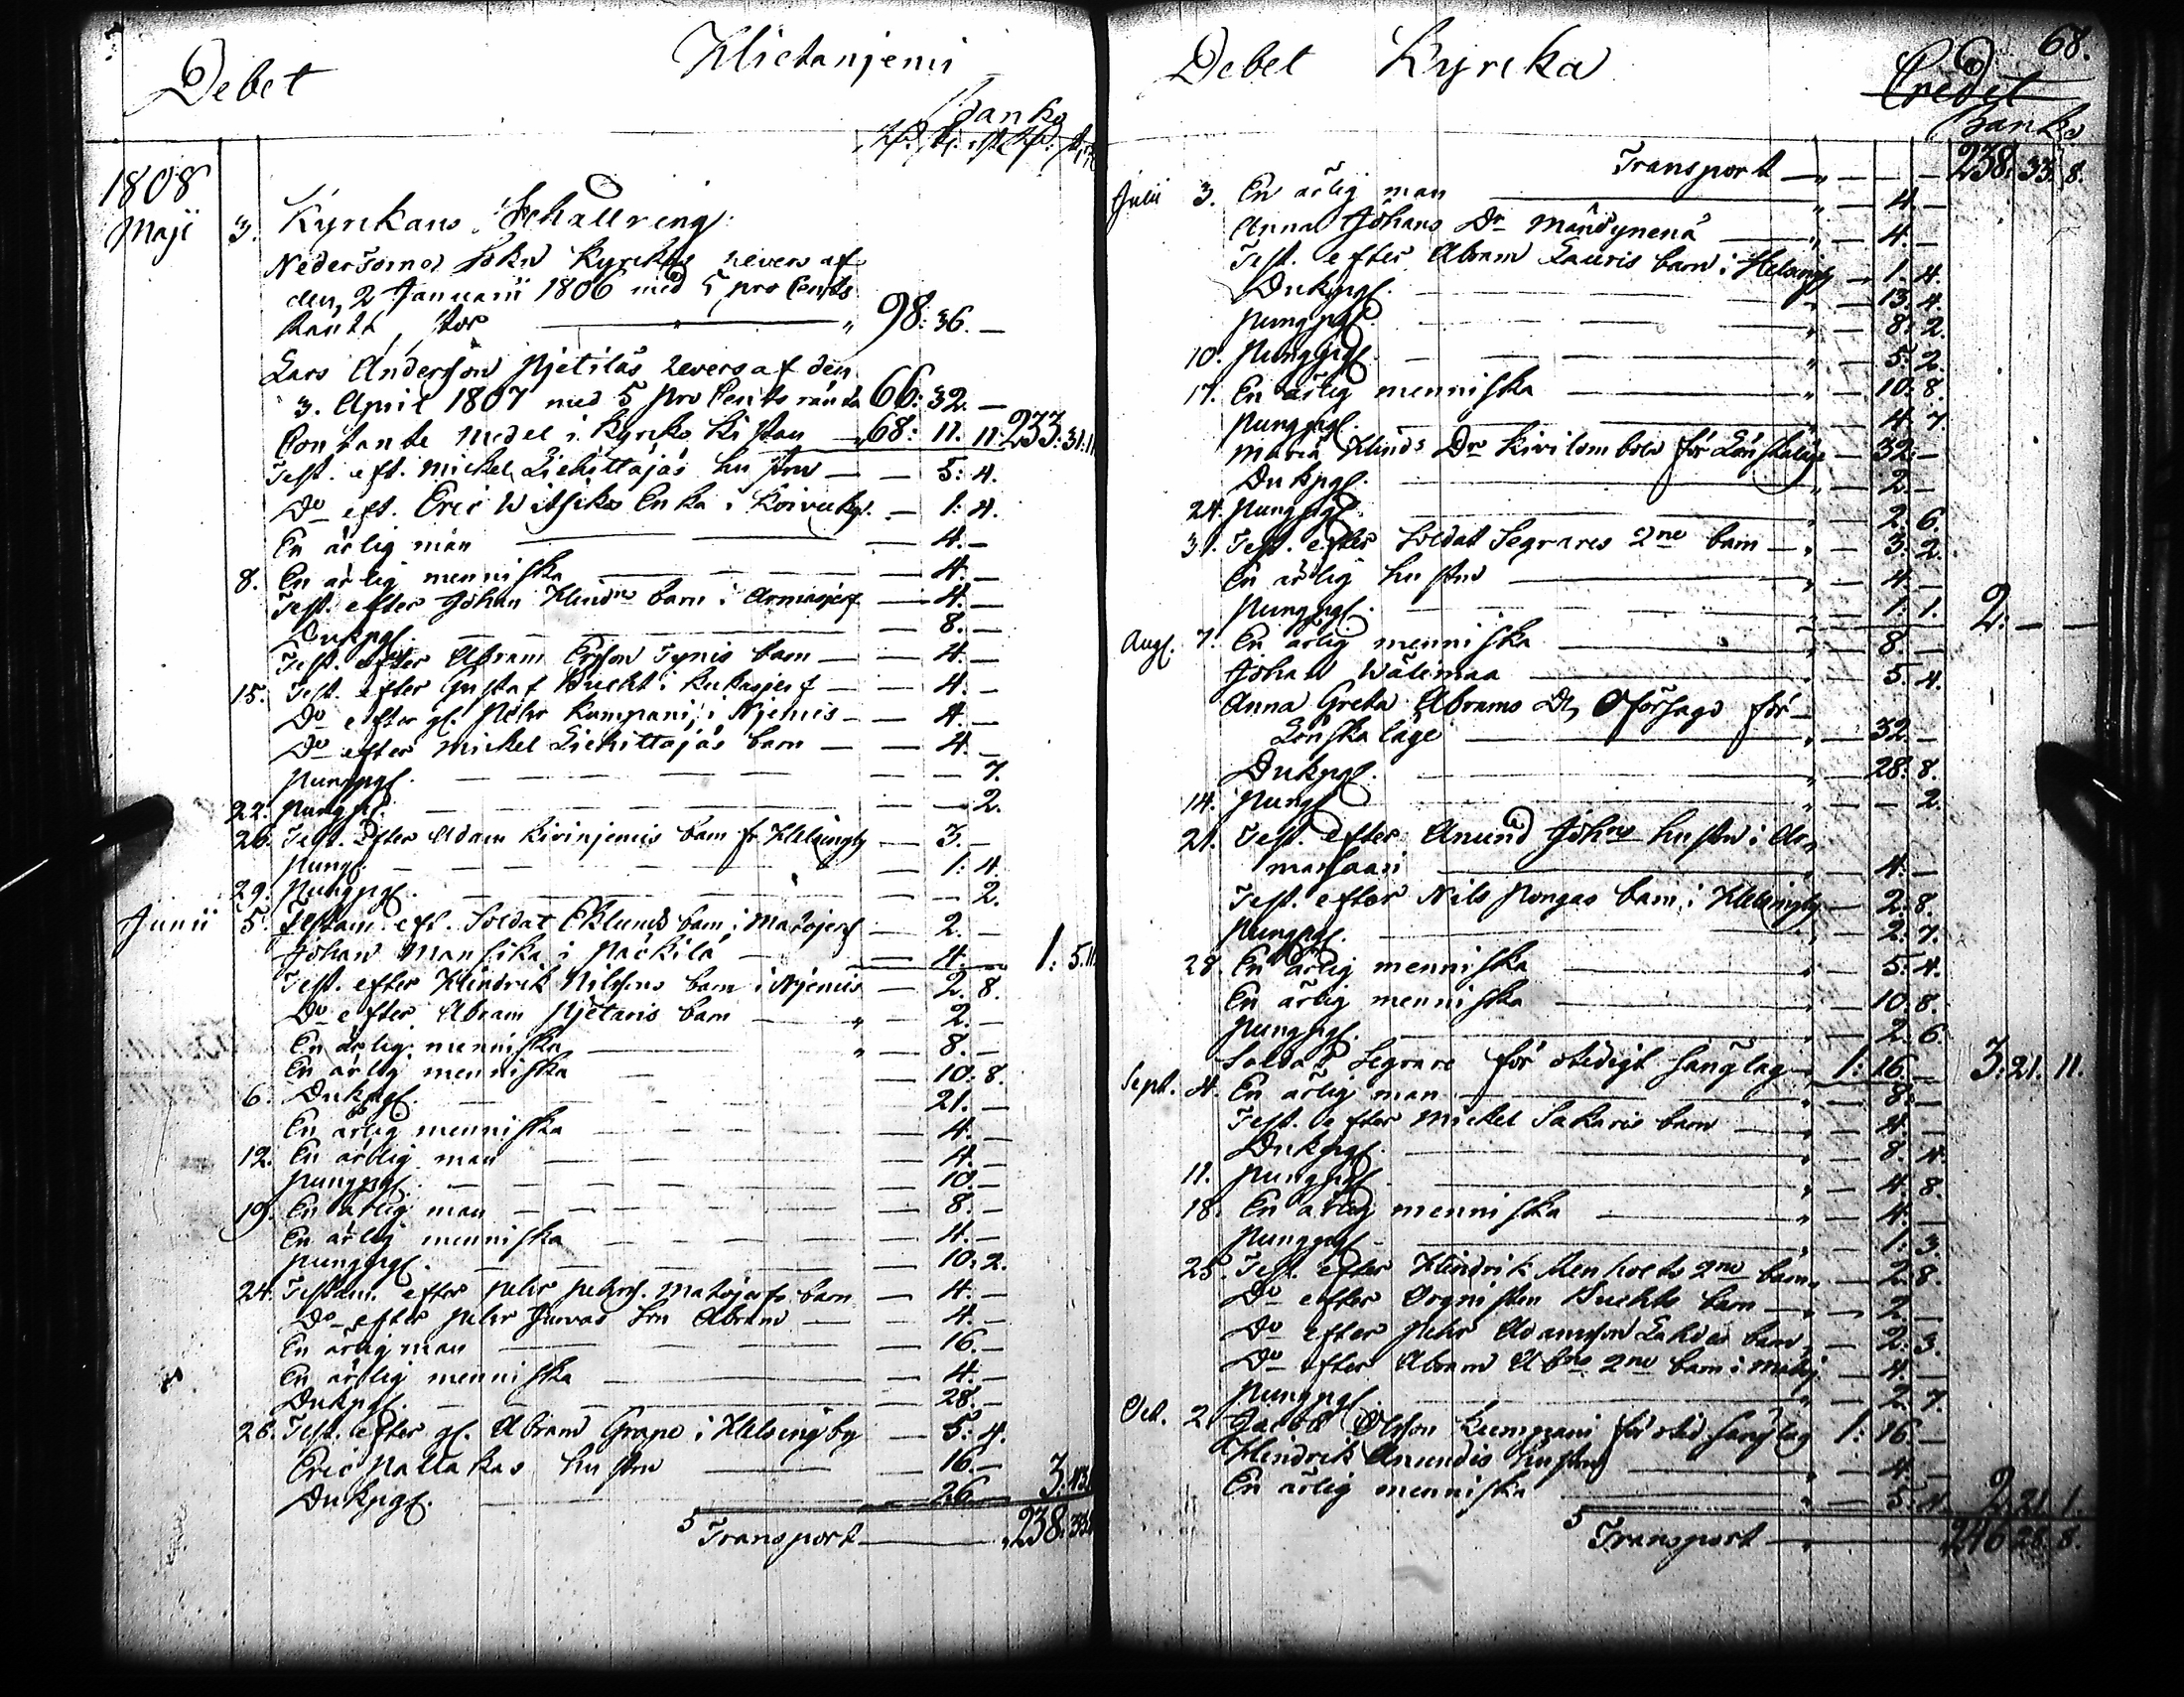 Debet Hietanjemi
Banko
1808
Maji 3. Kyrkans Behållning
Nedertorneå Sokn Kyrkas revers af
den 2 Januarii 1806 med 5 pro Cents
Ränta, stor — " 98: 36. —
Lars Anderson Pjetiläs revers af den
3. April 1807 med 5 pro Cents ränta 66: 32. —
Contante Medel i Kyrko Kistan — 68: 11. 11 233: 31. 11
Test. eft. Mickel Liehittäjäs hustru — — 5: 4.
Do eft. Eric Witsiko Enka i Koivuky. — 1: 4.
En ärlig man — 4. —
8. En ärlig menniska — 4. —
Test. efter Johan Hindrs barn i Armasjerf — 4. —
Dukpgl. — 8. —
Test. efter Abram Ersson Tynis barn — 4. —
15. Test. efter Gustaf Bucht i Kukasjerf — 4. —
Do efter gl. Pehr Kumpani, i Njemis — 4. —
Do efter Mickel Liehittäjäs barn — 4. —
Pungpgl. — 7.
22. Pungpgl. — 2.
26. Test. efter Adam Kivinjemis barn fr. Helsingby — 3. —
Pungl. — 1: 4.
29. Pungpgl. — 2.
Junii 5. Testam. eft. Soldat Eklunds barn i Matojerf — 2. —
Johan Mansika i Päckilä — 4. — 1: 5. 11
Test. efter Hindrik Nilssons barn i Njemis — 2. 8.
Do efter Abram Pjetaris barn — " — 2. —
En ärlig menniska — " — 8. —
En ärlig menniska — 10: 8.
6. Dukpgl. — 21. —
En ärlig menniska — 4. —
12. En ärlig man — 4. —
Pungpgl. — 10. —
19. En ärlig man — 8. —
En ärlig menniska — 4. —
Pungpgl. — 10: 2.
24. Testam. efter Pehr Pehrs. Matojerfs barn — 4. —
Do efter Pehr Junvas Son Abram — 4. —
En ärlig man — 16. —
En ärlig menniska — 4. —
Dukpgl. — 28. —
26. Test. efter gl. Abram Grape i Helsingby — 5: 4.
Eric Pallakas hustru — 16. —
Dukpgl. — 26. — 3: 43.
Transport — 238: 33.
68.
Debet Kyrka Credit
Banko
Transport — " — — 238: 33. 8.
Julii 3. En ärlig man — " — 4. —
Anna Johans Dr Mändynenä — " — 4. —
Test. efter Abram Lauris barn i Helsingby — 1. 4.
Dukpgl. — " — 13: 4.
Pungpgl. — " — 8: 2.
10. Pungpgl. — " — 5: 2.
17. En ärlig menniska — " — 10: 8.
Pungpgl. — " — 4. 7
Maria Hinds Dr Kivilombolo för Lönskaläge — 32. —
Dukpgl. — " — 2. —
24. Pungpgl. — " — 2. 6.
31. Test. efter Soldat Segrares 2ne barn — " — 3. 2.
En ärlig hustru — " — 4. —
Pungpgl. — " — 1. 1. 2: — —
Aug. 7. En ärlig menniska — " — 8 —
Johan Wälimaa — " — 5. 4.
Anna Greta Abrams Dr, för
Lönskaläge — " — 32. —
Dukpgl. — " — 28: 8.
14. Pungl — " — — 2.
21. Test. efter Anund Johns hustru i Ar-
mansaari — " — 4. —
Test. efter Nils Pongas barn i Helsingby — 2: 8.
Pungpgl. — " — 2: 7.
28. En ärlig menniska — " — 5: 4.
En ärlig menniska — " — 10: 8.
Pungpgl. — " — 2. 6
Soldat Segrare för otidigt Sänglag — 1: 16. — 3: 21. 11.
Sept. 4. En ärlig man — " — 8. —
Test. efter Mickel Sakaris barn — " — 4. —
Dukpgl. — " — 8. 4.
11. Pungpgl. — " — 4. 8.
18. En ärlig menniska — " — 4. —
Pungpgl. — " — 1. 3.
25. Test. efter Hindrik 2ne barn " — 2. 8.
Do efter Orgnisten Buchts barn — " — 2. —
Do efter Pehr Adamsson Lahdes barn " — 2. 3.
Do efter Abram Abrs 2ne barn i Matoj. — 4. —
Pungpgl. — " — 2. 7
Oct. 2. Jacob Olsson Kumpani för otid. Sänglag 1: 16. —
Hindrik Anundis hustru — " — 4. —
En ärlig menniska — " — 5: 4. 2: 21. 1.
Transport — " — 246: 28. 8.